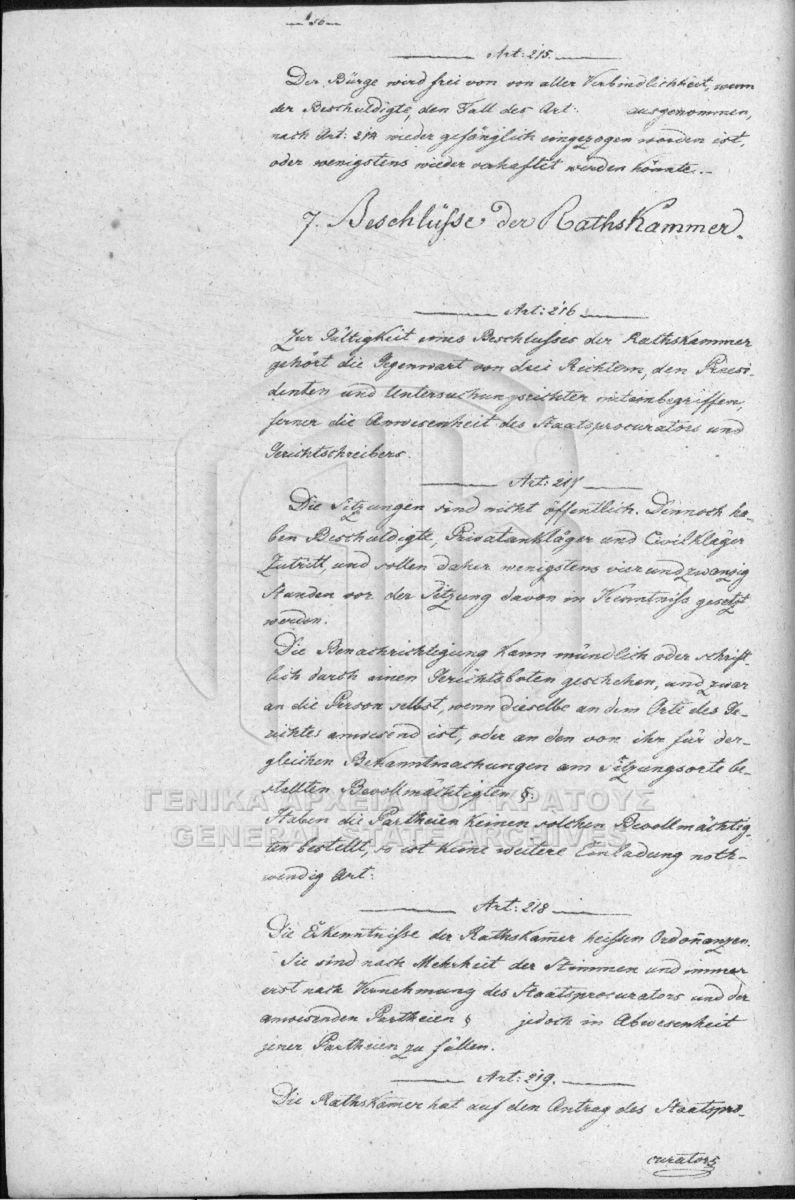 — 56 —
Art: 215.
Der Bürge wird frei von von aller Verbindlichkeit, wenn
der Beschuldigte, den Fall des Art: ausgenommen,
nach Art: 214 wieder gefänglich eingezogen worden ist,
oder wenigstens wieder verhaftet werden könnte.
7. Beschlüsse der Rathskammer.
Art: 216.
Zur Gültigkeit eines Beschlusses der Rathskammer
gehört die Gegenwart von drei Richtern, den Praesi-
denten und Untersuchungsrichter miteinbegriffen,
ferner die Anwesenheit des Staatsprocurators und
Gerichtschreibers.
Art: 217
Die Sitzungen sind nicht öffentlich. Dennoch ha-
ben Beschuldigte, Privatankläger und Civilkläger
Zutritt, und sollen daher wenigstens vier und zwanzig
Stunden vor der Sitzung davon in Kenntniss gesetzt
werden.
Die Benachrichtigung kann mündlich oder schrift-
lich durch einen Gerichtsboten geschehen, und zwar
an die Person selbst, wenn dieselbe an dem Orte des Ge-
richtes anwesend ist, oder an den von ihr für der-
gleichen Bekanntmachungen am Sitzungsorte be-
stellten Bevollmächtigten §.
ΓΕΝΙΚΑ ΑΡΧΕΙΑ ΤΟΥ ΚΡΑΤΟΥΣ
Haben die Partheien keinen solchen Bevollmächtig-
GENERAL STATE ARCHIVES
ten bestellt, so ist keine weitere Einladung noth-
wendig Art:
Art: 218
Die Erkenntnisse der Rathskam̄er heissen Ordon̄anzen.
Sie sind nach Mehrheit der Stimmen und immer
erst nach Vernehmung des Staatsprocurators und der
anwesenden Partheien § jedoch in Abwesenheit
jener Partheien zu fällen.
Art: 219.
Die Rathskam̄er hat auf den Antrag des Staatspro-
curators